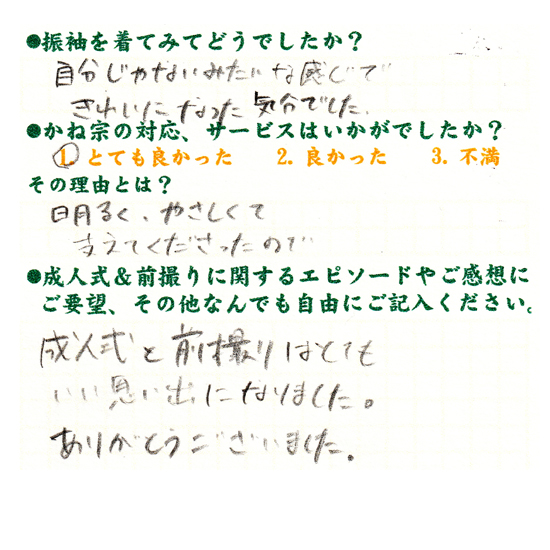 ●振袖を着てみてどうでしたか？
自分じゃないみたいな感じで
きれいになった気分でした.
●かね宗の対応、サービスはいかがでしたか？
1. とても良かった　2. 良かった　3. 不満
その理由とは？
明るく、やさしくて
支えてくださったので
●成人式＆前撮りに関するエピソードやご感想に
ご要望、その他なんでも自由にご記入ください。
成人式と前撮りはとても
いい思い出になりました。
ありがとうございました。